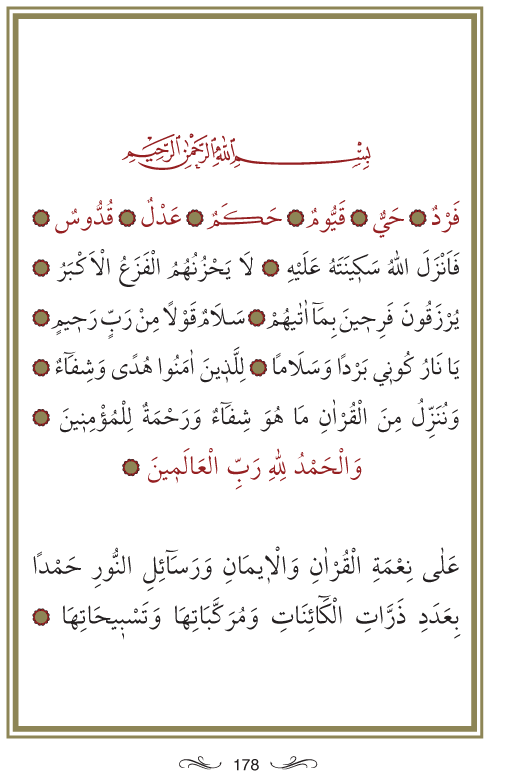 بِسْمِ اللّٰهِ الرَّحْمٰنِ الرَّحِيمِ
فَرْدٌ ۞ حَيٌّ ۞ قَيُّومٌ ۞ حَكَمٌ ۞ عَدْلٌ ۞ قُدُّوسٌ ۞
فَاَنْزَلَ اللّٰهُ سَكِينَتَهُ عَلَيْهِ ۞ لَا يَحْزُنُهُمُ الْفَزَعُ الْاَكْبَرُ ۞
يُرْزَقُونَ فَرِحِينَ بِمَٓا اٰتٰيهُمْ ۞ سَلَامٌ قَوْلًا مِنْ رَبٍّ رَحِيمٍ ۞
يَا نَارُ كُونِي بَرْدًا وَسَلَامًا ۞ لِلَّذِينَ اٰمَنُوا هُدًى وَشِفَٓاءٌ ۞
وَنُنَزِّلُ مِنَ الْقُرْاٰنِ مَا هُوَ شِفَٓاءٌ وَرَحْمَةٌ لِلْمُؤْمِنِينَ ۞
وَالْحَمْدُ لِلّٰهِ رَبِّ الْعَالَمِينَ ۞
عَلٰى نِعْمَةِ الْقُرْاٰنِ وَالْاِيمَانِ وَرَسَٓائِلِ النُّورِ حَمْدًا
بِعَدَدِ ذَرَّاتِ الْكَٓائِنَاتِ وَمُرَكَّبَاتِهَا وَتَسْبِيحَاتِهَا ۞
178